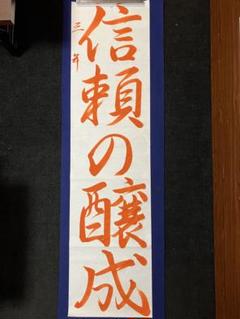 信頼の醸成
三年